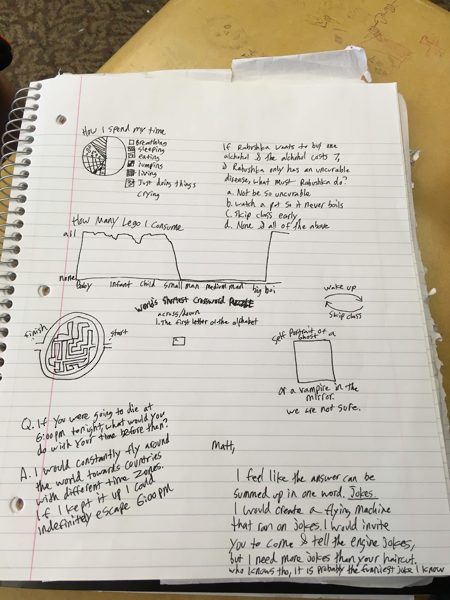 How I spend my time
Breathing
sleeping
eating
jumping
living
Just doing things
crying
If Rabushka wants to buy one
alchohol & the alchohol costs 7,
& Rabushka only has an uncurable
disease, what must Rabushka do?
a. Not be so uncurable
b. watch a pot so it never boils
c. Skip class early
d. None & all of the above
How Many Lego I Consume
all
none
baby infant child small man medium man big boi
World's Shortest Crossword Puzzle
across/down
1. The first letter of the alphabet
wake up
Skip class
finish
start
Self Portrait of a
Ghost
Or a vampire in the
mirror.
we are not sure.
Q. If you were going to die at
6:00pm tonight, what would you
do with your time before then?
A. I would constantly fly around
the world towards countries
with different time zones.
If I kept it up I could
indefinitely escape 6:00pm
Matt,
I feel like the answer can be
summed up in one word. Jokes.
I would create a flying machine
that ran on jokes. I would invite
you to come & tell the engine jokes,
but I need more jokes than your haircut.
who knows tho, it is probably the funniest joke I know